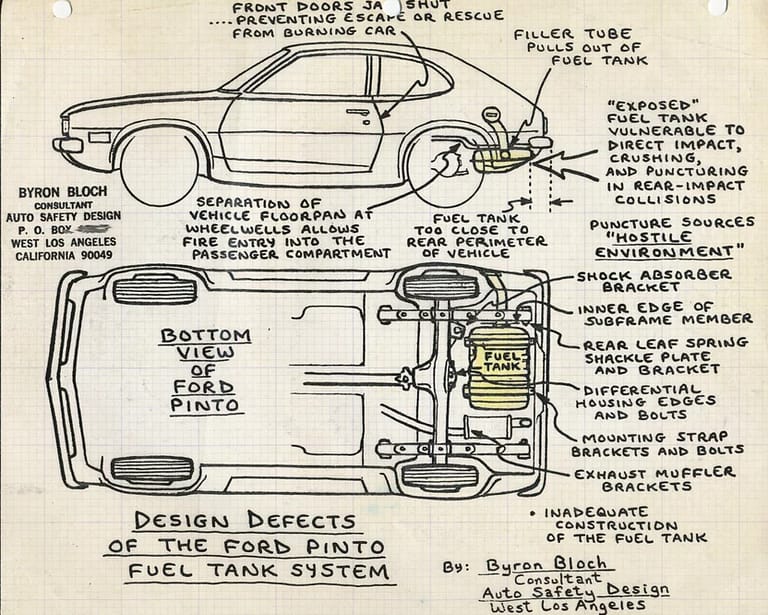 FRONT DOORS JAM SHUT
....PREVENTING ESCAPE OR RESCUE
FROM BURNING CAR
FILLER TUBE
PULLS OUT OF
FUEL TANK
"EXPOSED"
FUEL TANK
VULNERABLE TO
DIRECT IMPACT,
CRUSHING,
AND PUNCTURING
IN REAR-IMPACT
COLLISIONS
BYRON BLOCH
CONSULTANT
AUTO SAFETY DESIGN
P. O. BOX
WEST LOS ANGELES
CALIFORNIA 90049
SEPARATION OF
VEHICLE FLOORPAN AT
WHEELWELLS ALLOWS
FIRE ENTRY INTO THE
PASSENGER COMPARTMENT
FUEL TANK
TOO CLOSE TO
REAR PERIMETER
OF VEHICLE
PUNCTURE SOURCES
"HOSTILE
ENVIRONMENT"
SHOCK ABSORBER
BRACKET
INNER EDGE OF
SUBFRAME MEMBER
REAR LEAF SPRING
SHACKLE PLATE
AND BRACKET
DIFFERENTIAL
HOUSING EDGES
AND BOLTS
MOUNTING STRAP
BRACKETS AND BOLTS
EXHAUST MUFFLER
BRACKETS
BOTTOM
VIEW
OF
FORD
PINTO
FUEL
TANK
• INADEQUATE
CONSTRUCTION
OF THE FUEL TANK
DESIGN DEFECTS
OF THE FORD PINTO
FUEL TANK SYSTEM
By: Byron Bloch
Consultant
Auto Safety Design
West Los Angeles